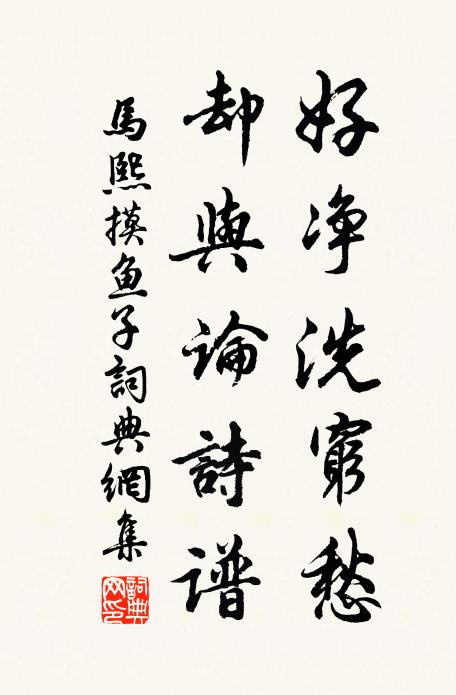 好净洗窮愁
却與論詩譜
馬熙摸魚子詞典網集
詞典网印